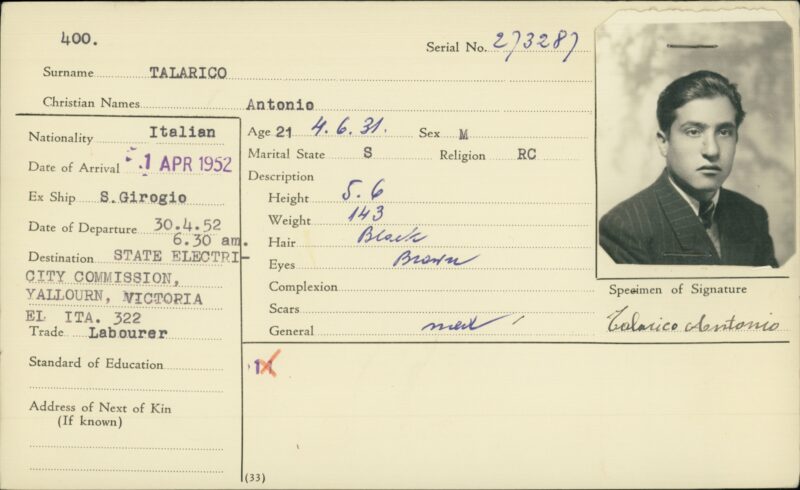 400.
Serial No. 273287
Surname TALARICO
Christian Names Antonio
Nationality Italian
Date of Arrival 1 APR 1952
Ex Ship S.Girogio
Date of Departure 30.4.52
6.30 am.
Destination STATE ELECTRI-
CITY COMMISSION,
YALLOURN, VICTORIA
EL ITA. 322
Trade Labourer
Standard of Education
Address of Next of Kin
(If known)
Age 21 4.6.31. Sex M
Marital State S Religion RC
Description
Height 5.6
Weight 143
Hair Black
Eyes Brown
Complexion
Scars
General med
11
(33)
Specimen of Signature
Talarico Antonio